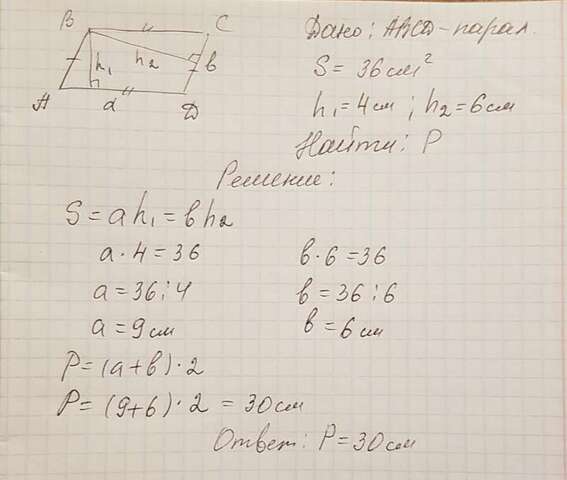 B C
h₁ h₂ в
A a D
Дано: ABCD - парал.
S = 36 см²
h₁ = 4 см ; h₂ = 6 см
Найти: P
Решение:
S = a h₁ = в h₂
a · 4 = 36 в · 6 = 36
a = 36 : 4 в = 36 : 6
a = 9 см в = 6 см
P = (a + в) · 2
P = (9+6) · 2 = 30 см
Ответ: P = 30 см